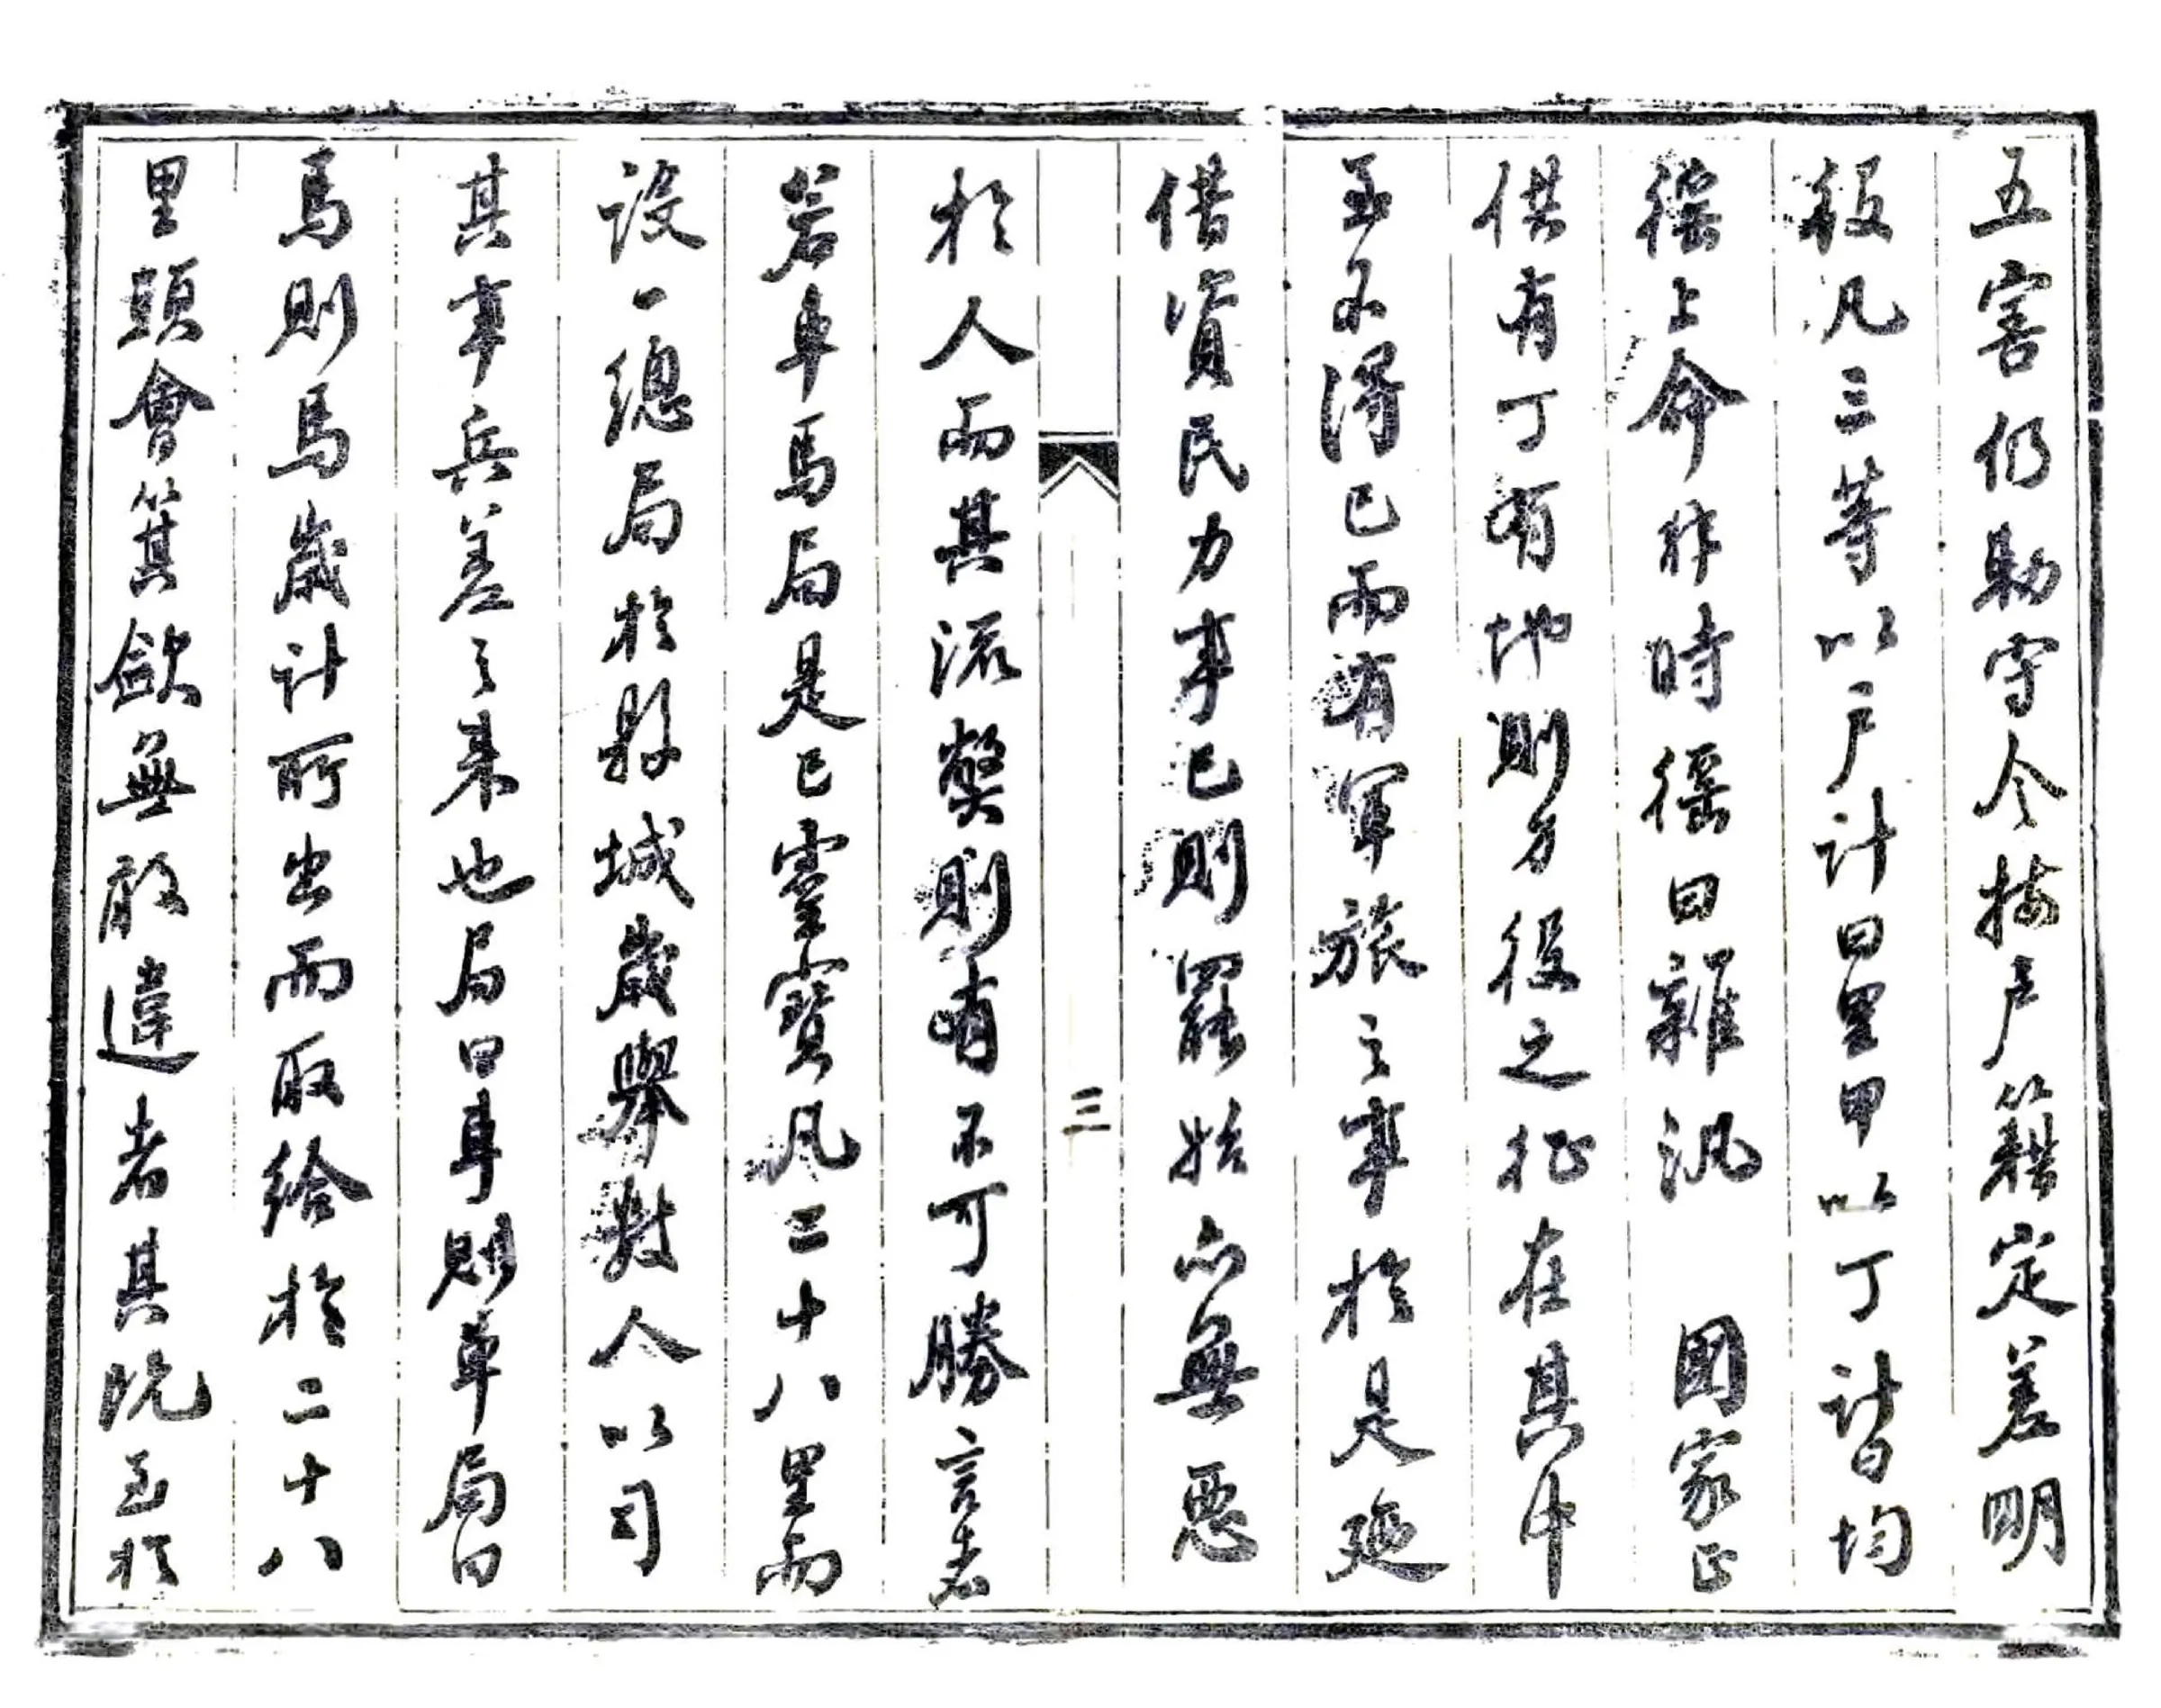 五害仍勅守令按戶籍定差明
役凡三等以戶計曰里甲以丁計皆均
徭上命非時徭曰雜汎 國家正
供有丁有地則力役之征在其中
至不得已而有軍旅之事於是廼
借資民力事已則罷始亦無惡
三
於人而其流弊則有不可勝言者
若車馬局是已靈寶凡二十八里而
設一總局於縣城歲舉數人以司
其事兵差之來也局曰車則車局曰
馬則馬歲計所出而取給於二十八
里頭會箕斂無敢違者其既至於